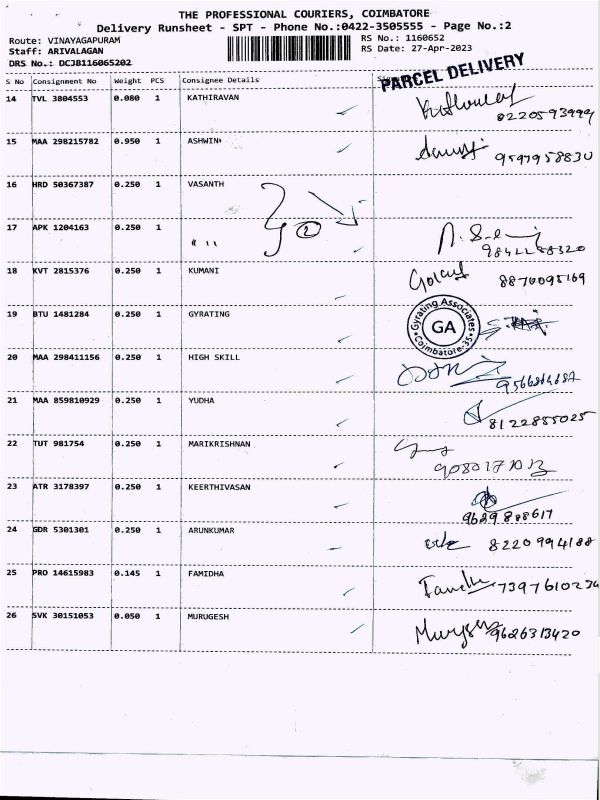 THE PROFESSIONAL COURIERS, COIMBATORE
Delivery Runsheet - SPT - Phone No.:0422-3505555 - Page No.:2
Route: VINAYAGAPURAM RS No.: 1160652
Staff: ARIVALAGAN RS Date: 27-Apr-2023
DRS No.: DCJB116065202
PARCEL DELIVERY
S No Consignment No Weight PCS Consignee Details
14 TVL 3804553 0.080 1 KATHIRAVAN
15 MAA 298215782 0.950 1 ASHWIN
9597958830
16 HRD 50367387 0.250 1 VASANTH
17 APK 1204163 0.250 1 " "
2
18 KVT 2815376 0.250 1 KUMANI
8870095169
19 BTU 1481284 0.250 1 GYRATING
Gyrating Associates
GA
Coimbatore-35
20 MAA 298411156 0.250 1 HIGH SKILL
21 MAA 859810929 0.250 1 YUDHA
8122855025
22 TUT 981754 0.250 1 MARIKRISHNAN
23 ATR 3178397 0.250 1 KEERTHIVASAN
9629888617
24 GDR 5301301 0.250 1 ARUNKUMAR
8220994188
25 PRO 14615983 0.145 1 FAMIDHA
7397610234
26 SVK 30151053 0.050 1 MURUGESH
9626313420